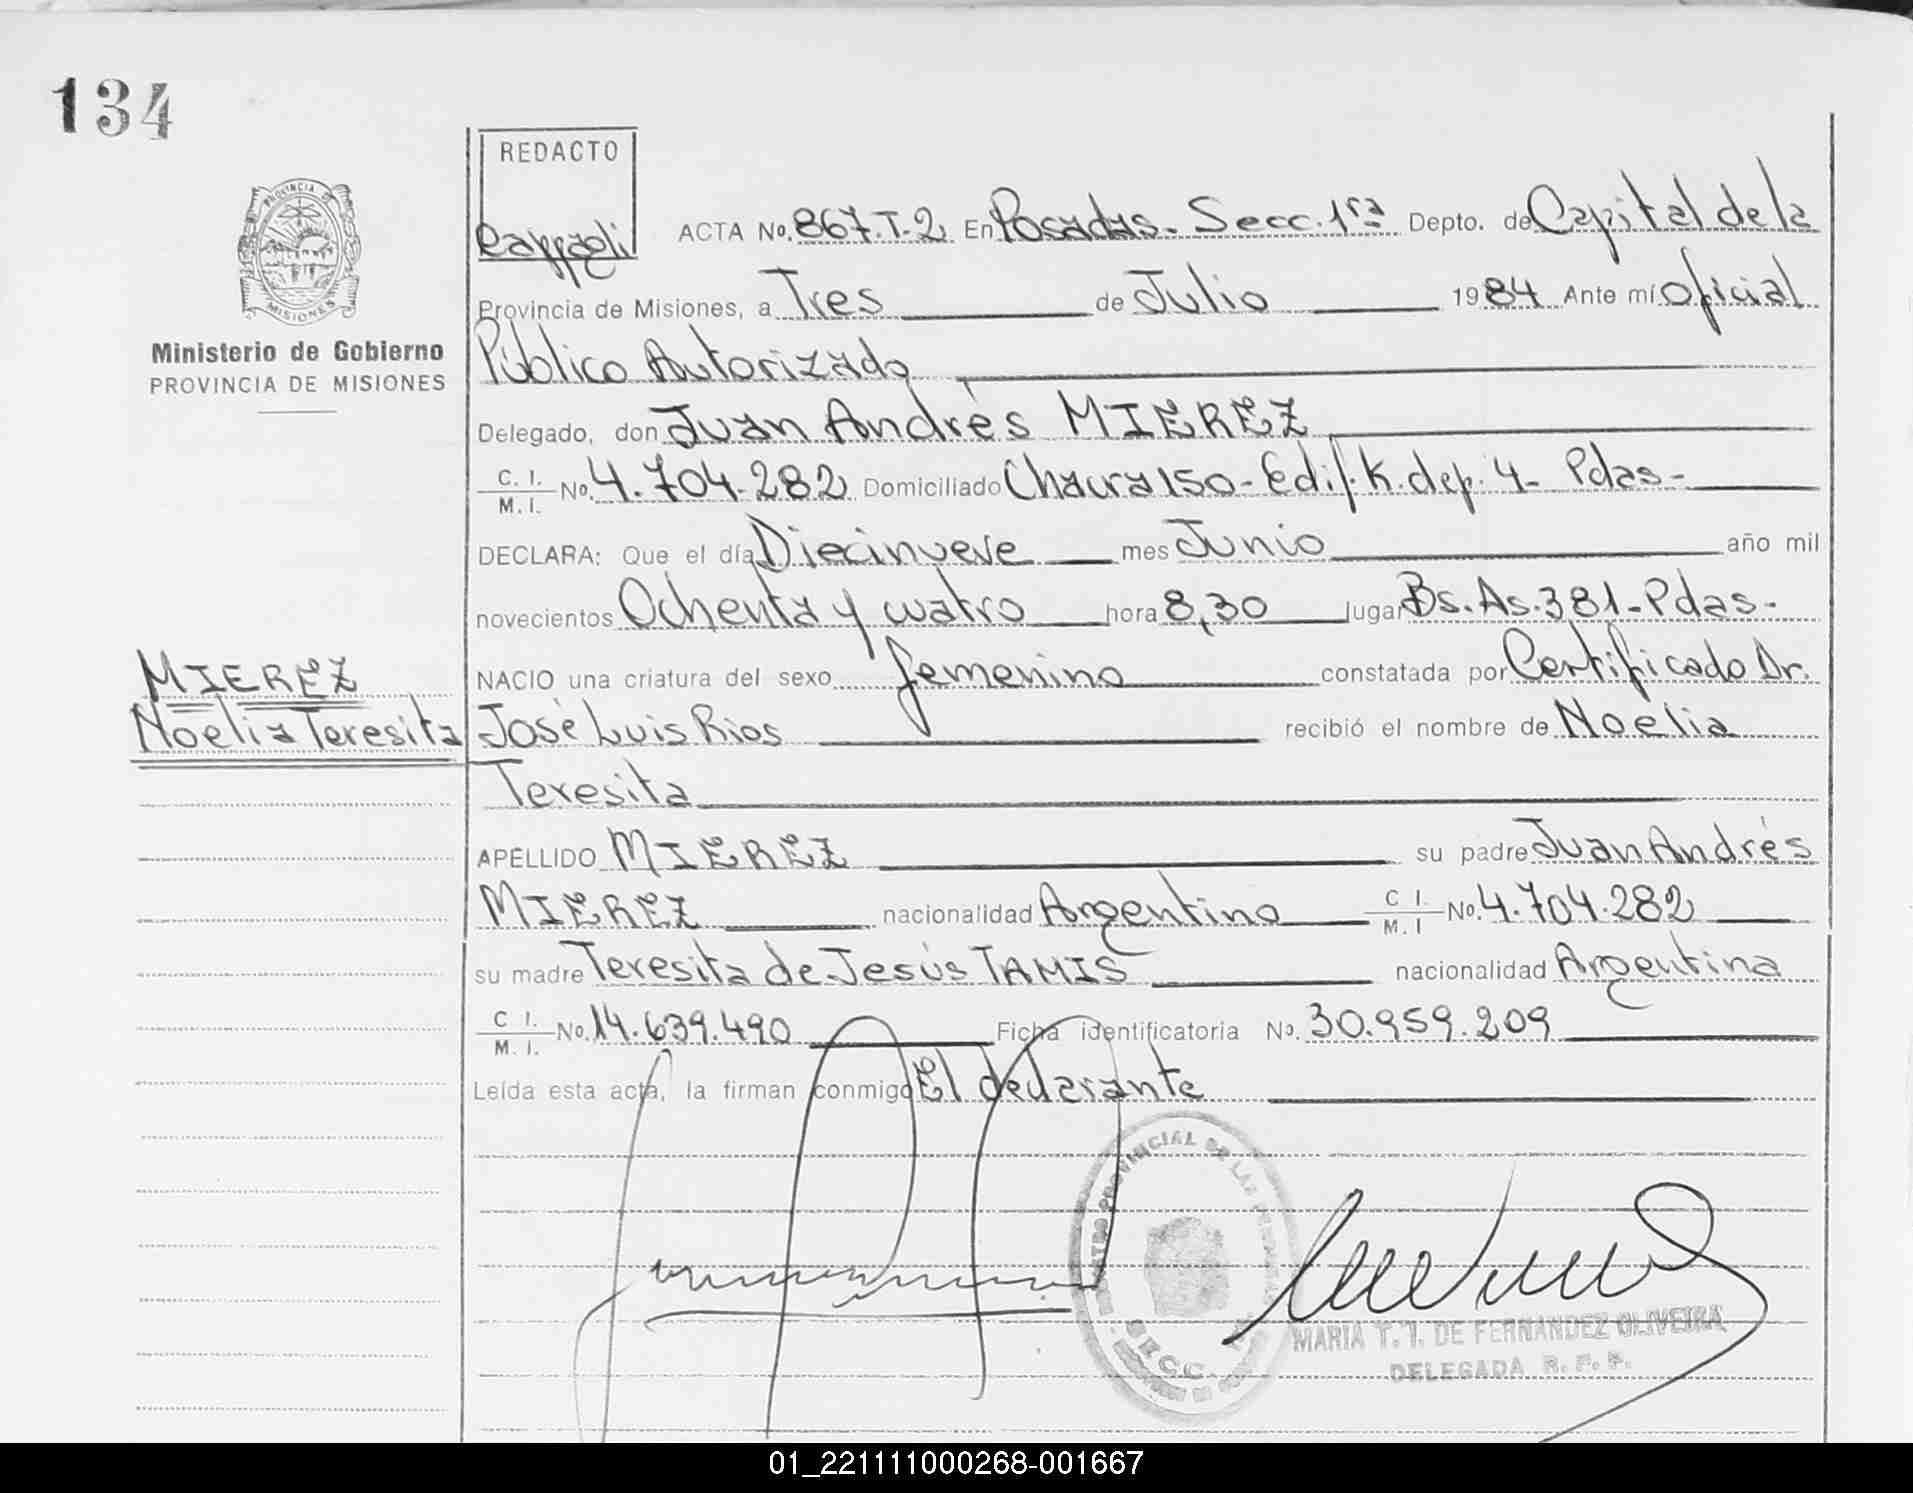 134
REDACTO
PROVINCIA DE
MISIONES
Ministerio de Gobierno
PROVINCIA DE MISIONES
ACTA No. 867.T-2 En Posadas. Secc. 1ra Depto. de Capital de la
Provincia de Misiones, a Tres de Julio 1984 Ante mí Oficial
Público Autorizado
Delegado, don Juan Andrés MIEREZ
C. I. M. I. No. 4.704.282 Domiciliado Chacra 150-Edif.K.dep. 4- Pdas-
DECLARA: Que el día Diecinueve mes Junio año mil
novecientos Ochenta y cuatro hora 8,30 lugar Bs.As.381-Pdas-
MIEREZ
Noelia Teresita
NACIO una criatura del sexo femenino constatada por Certificado Dr.
José Luis Rios recibió el nombre de Noelia
Teresita
APELLIDO MIEREZ su padre Juan Andrés
MIEREZ nacionalidad Argentino C I. M. I No. 4.704.282
su madre Teresita de Jesús TAMIS nacionalidad Argentina
C I. M. I. No. 14.639.490 Ficha identificatoria No. 30.959.209
Leída esta acta, la firman conmigo El declarante
PROVINCIAL DE LAS
SECC.
MARIA T. I. DE FERNANDEZ OLIVEIRA
DELEGADA R. P. P.
01_221111000268-001667